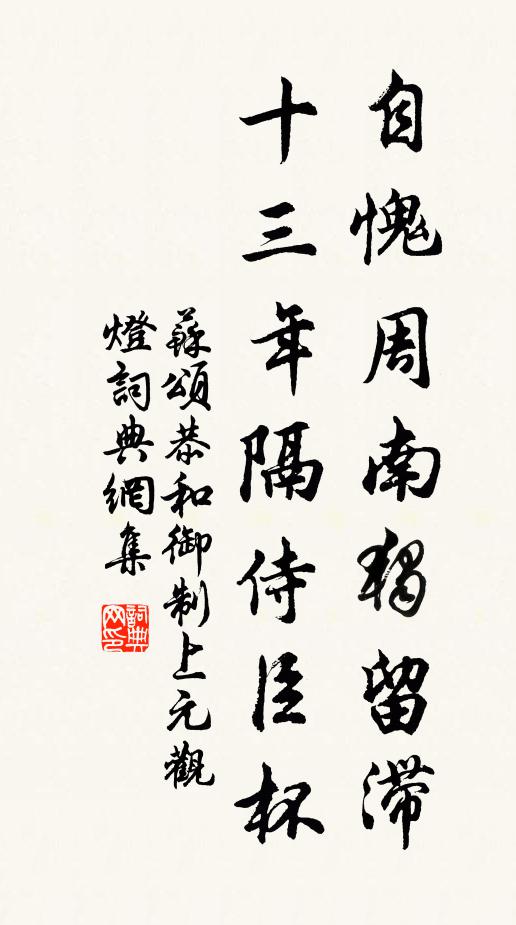 自愧周南獨留滯
十三年隔侍臣杯
蘇頌恭和御制上元觀
燈詞典網集
詞典
网印